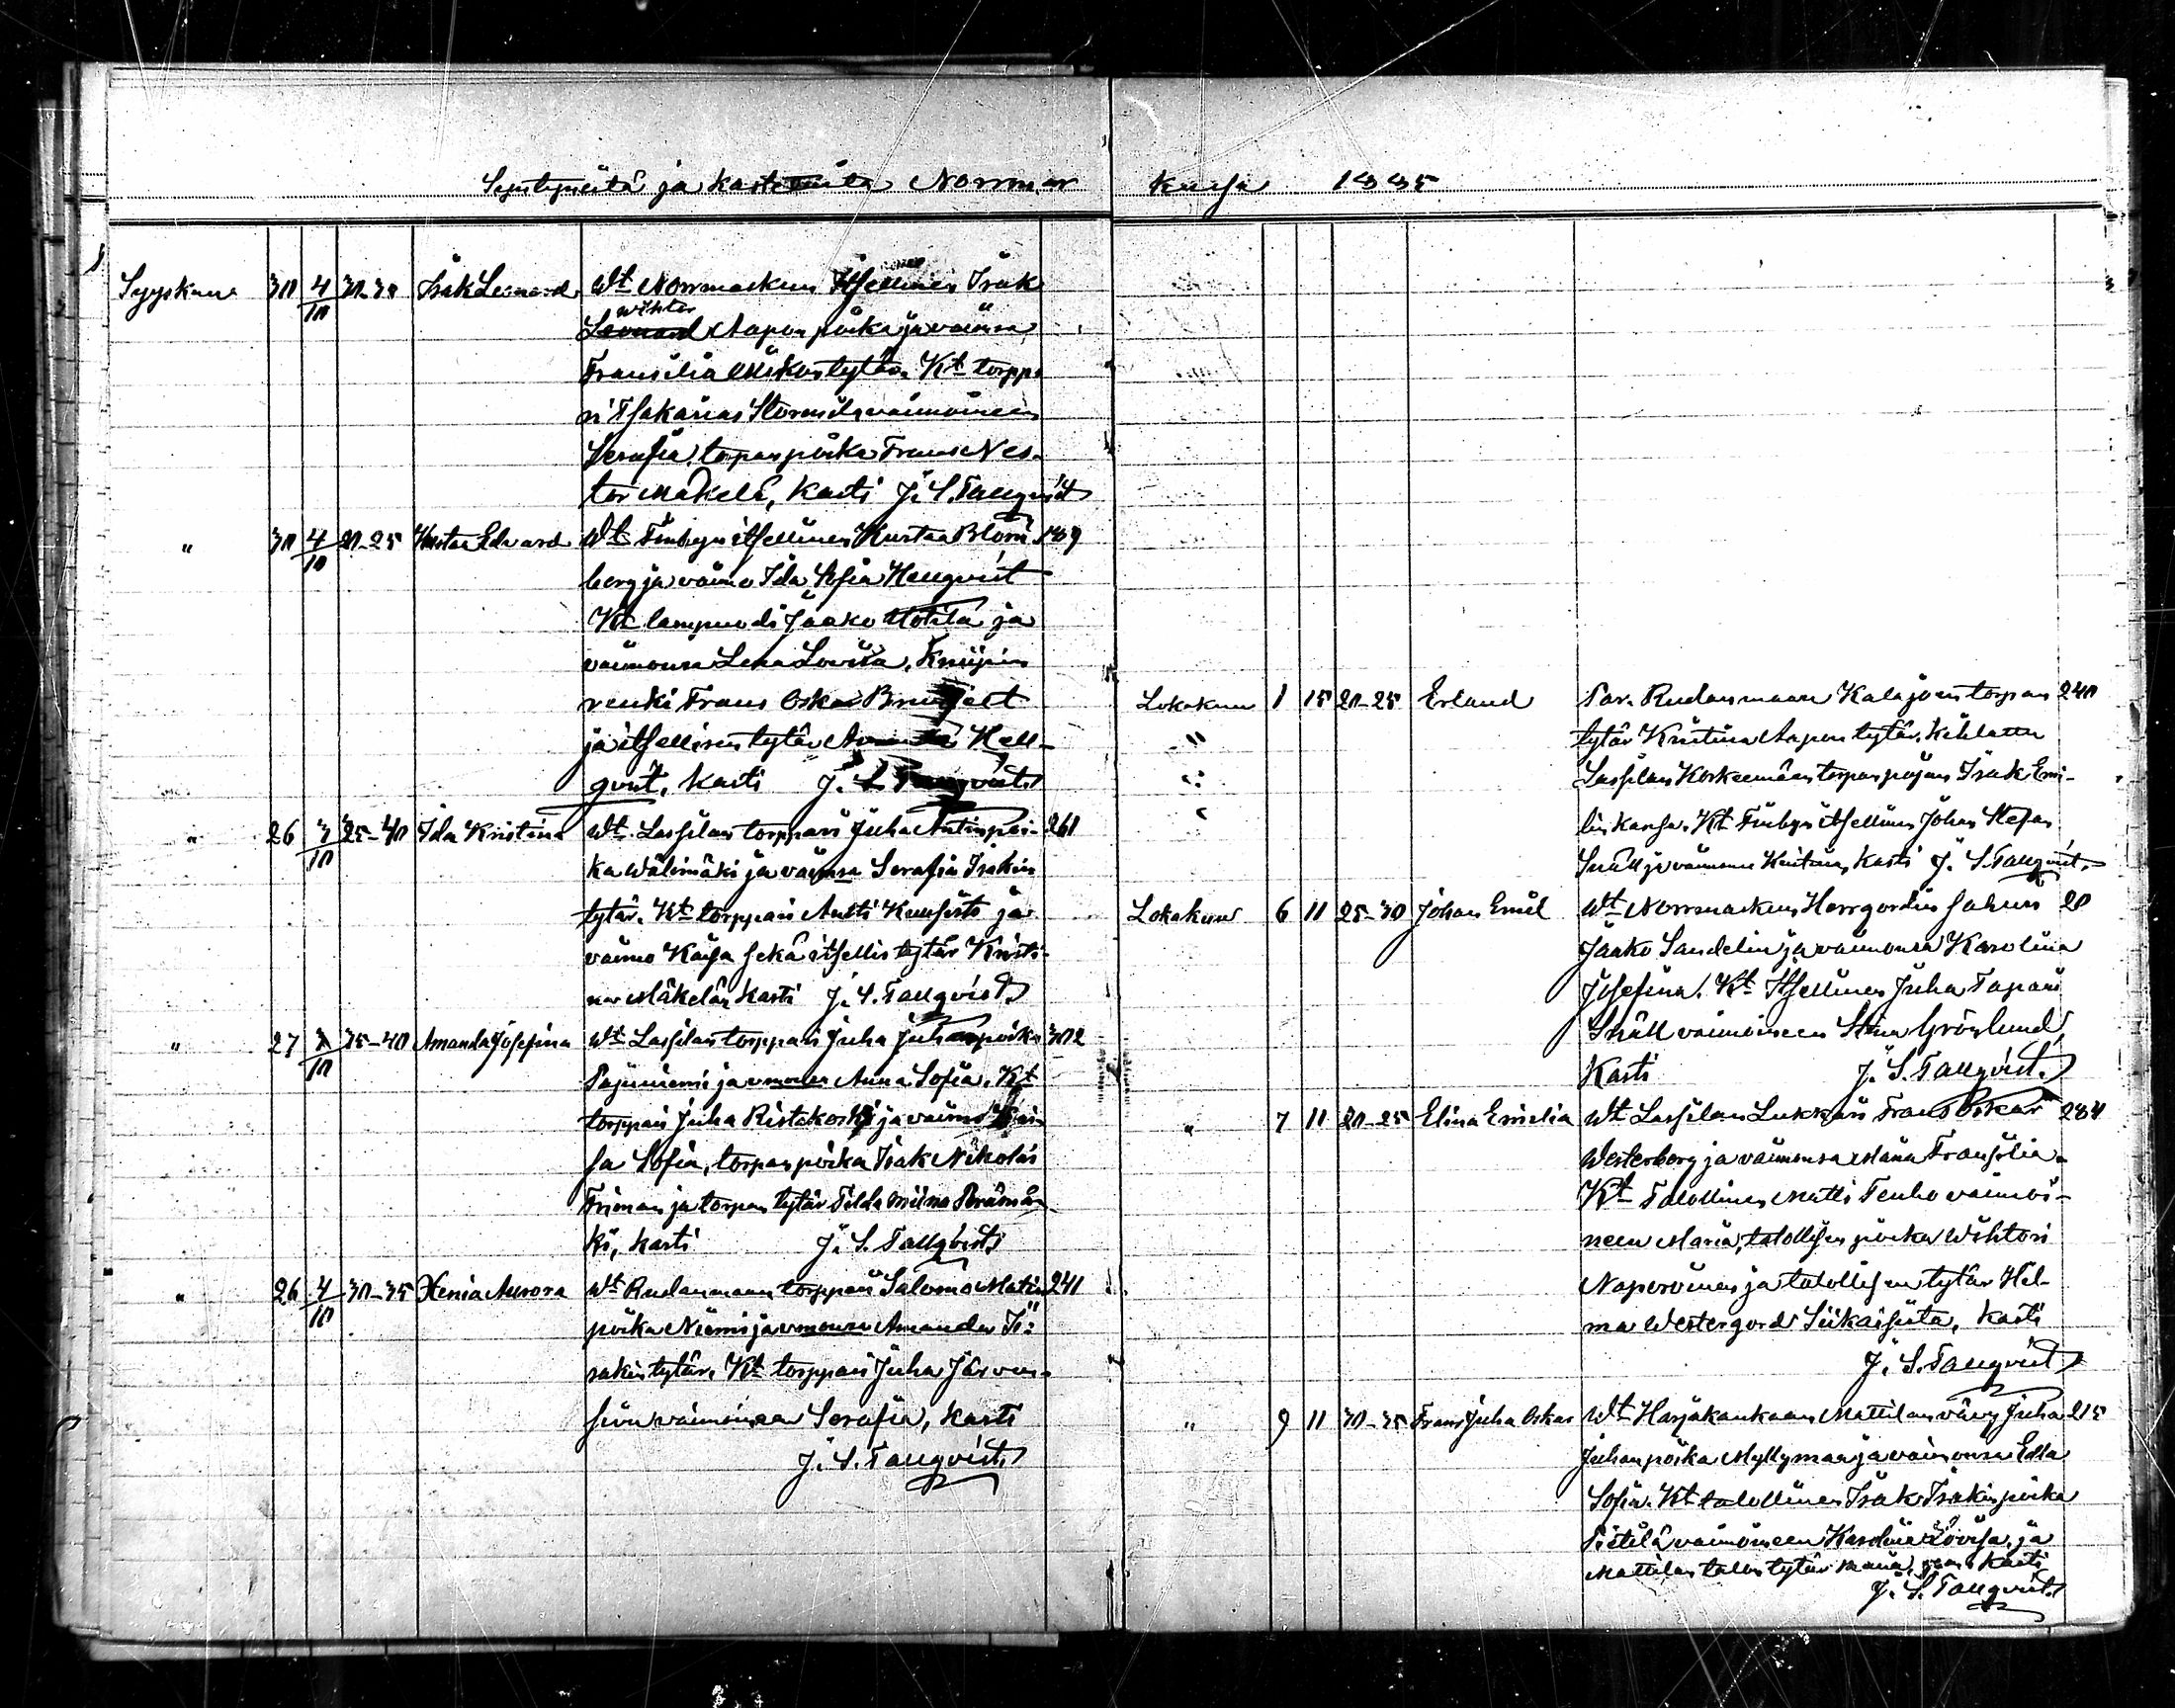 Syntyneitä ja kastetuita Norrmar
Syyskuu 30 4/10 30-35 Isak Leonard Wt Norrmarkun Itsellinen Isak
wihtor
Leonard Aapon poika ja vaimonsa
Fransilia Mikontytär. Kt torppa-
ri Isakarias Stormi ja vaimoineen
Serafia, torpan poika Frans Nes-
tor Mäkelä, Kasti J. S. Tallqvist
" 30 4/10 20-25 Kustaa Edvard Wt Finbyn itsellinen Kustaa Blom- 189
berg ja vaimo Ida Sofia Hellqvist
Kt lampuodi Jaako Uotila ja
vaimonsa Lena Lovisa,
renki Frans Oskar
ja itsellisen tytär Hell-
qvist, Kasti J. S. Tallqvist
" 26 3/10 35-40 Ida Kristina Wt. Lassilan torppari Juha Antinpoi- 261
ka Wälimäki ja vaimonsa Serafia Isakin
tytär. Kt torppari Antti Kuusisto ja
vaimo Kaisa sekä itsellis tytär Kristi-
na Mäkelän Kasti J. S. Tallqvist
" 27 3/10 35-40 Amanda Josefina Wt Lassilan torppari Juha Juhanpoika 302
Pajuniemi ja vaimonsa Anna Sofia. Kt
torppari Juha Ristakoski ja vaimo Kai-
sa Sofia, torpan poika Isak Nikolai
Friman ja torpan tytär Tilda Miina Perämä-
ki, Kasti J. S. Tallqvist
" 26 4/10 30-35 Xenia Aurora Wt Rudanmaan torppari Salomo Matin 241
poika Niemi ja vaimonsa Amanda I-
sakin tytär. Kt torppari Juha Järven-
siivu vaimoineen Serafia, Kasti
J. S. Tallqvist
kussa 1885
Lokakuu 1 15 20-25 Erland Par. Rudanmaan Kalajoen torpan 240
" tytär Kristiina Aapon tytär, kihlattu
Lassilan Korkeemäen torpan pojan Isak Emi-
lin kanssa. Kt Finbyn itsellinen Johan Stefan
Snäll ja vaimonsa Kristiina, Kasti J. S. Tallqvist
Lokakuu 6 11 25-30 Johan Emil Wt Norrmarkun Herrgordin sahuri 20
Jaako Sandelin ja vaimonsa Karolina
Josefina. Kt Itsellinen Juha Tapani
Snäll vaimoineen Stina Grönlund,
Kasti J. S. Tallqvist
" 7 11 20-25 Elina Emelia Wt Lassilan Lukkari Frans Oskar 284
Westerberg ja vaimonsa Maria Fransilia.
Kt Talollinen Matti Tenho vaimoi-
neen Maria, talollisen poika Wihtori
Naporoinen ja talollisen tytär Hel-
ma Westergord Siikaisista, Kasti
J. S. Tallqvist
" 9 11 30-35 Frans Juha Oskar Wt Harjakankaan Mattilan vävy Juha 215
Juhanpoika Myllymaa ja vaimonsa Edla
Sofia. Kt talollinen Isak Isakin poika
Pietilä vaimoineen Karoliina Lovisa, ja
Mattilan talon tytär Maria, Kasti
J. S. Tallqvist